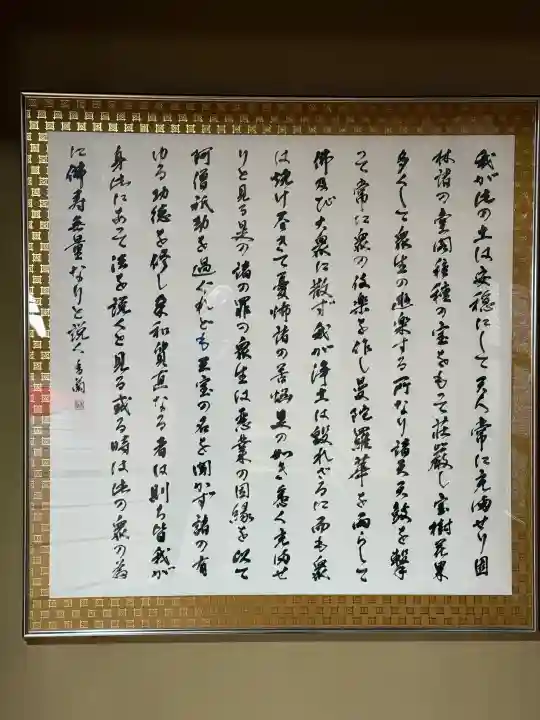 我が此の土は安穏にして天人常に充満せり園
林諸の堂閣種種の宝をもって荘厳し宝樹花果
多くして衆生の遊楽する所なり諸天天鼓を撃
って常に衆の伎楽を作し曼陀羅華を雨らして
佛及び大衆に散ず我が浄土は毀れざるに而も衆
は焼け尽きて憂怖諸の苦悩是の如き悉く充満せ
りと見る是の諸の罪の衆生は悪業の因縁を以て
阿僧祇劫を過ぐれども三宝の名を聞かず諸の有
ゆる功徳を修し柔和質直なる者は則ち皆我が
身此にあって法を説くと見る或る時は此の衆の為
に佛寿無量なりと説く